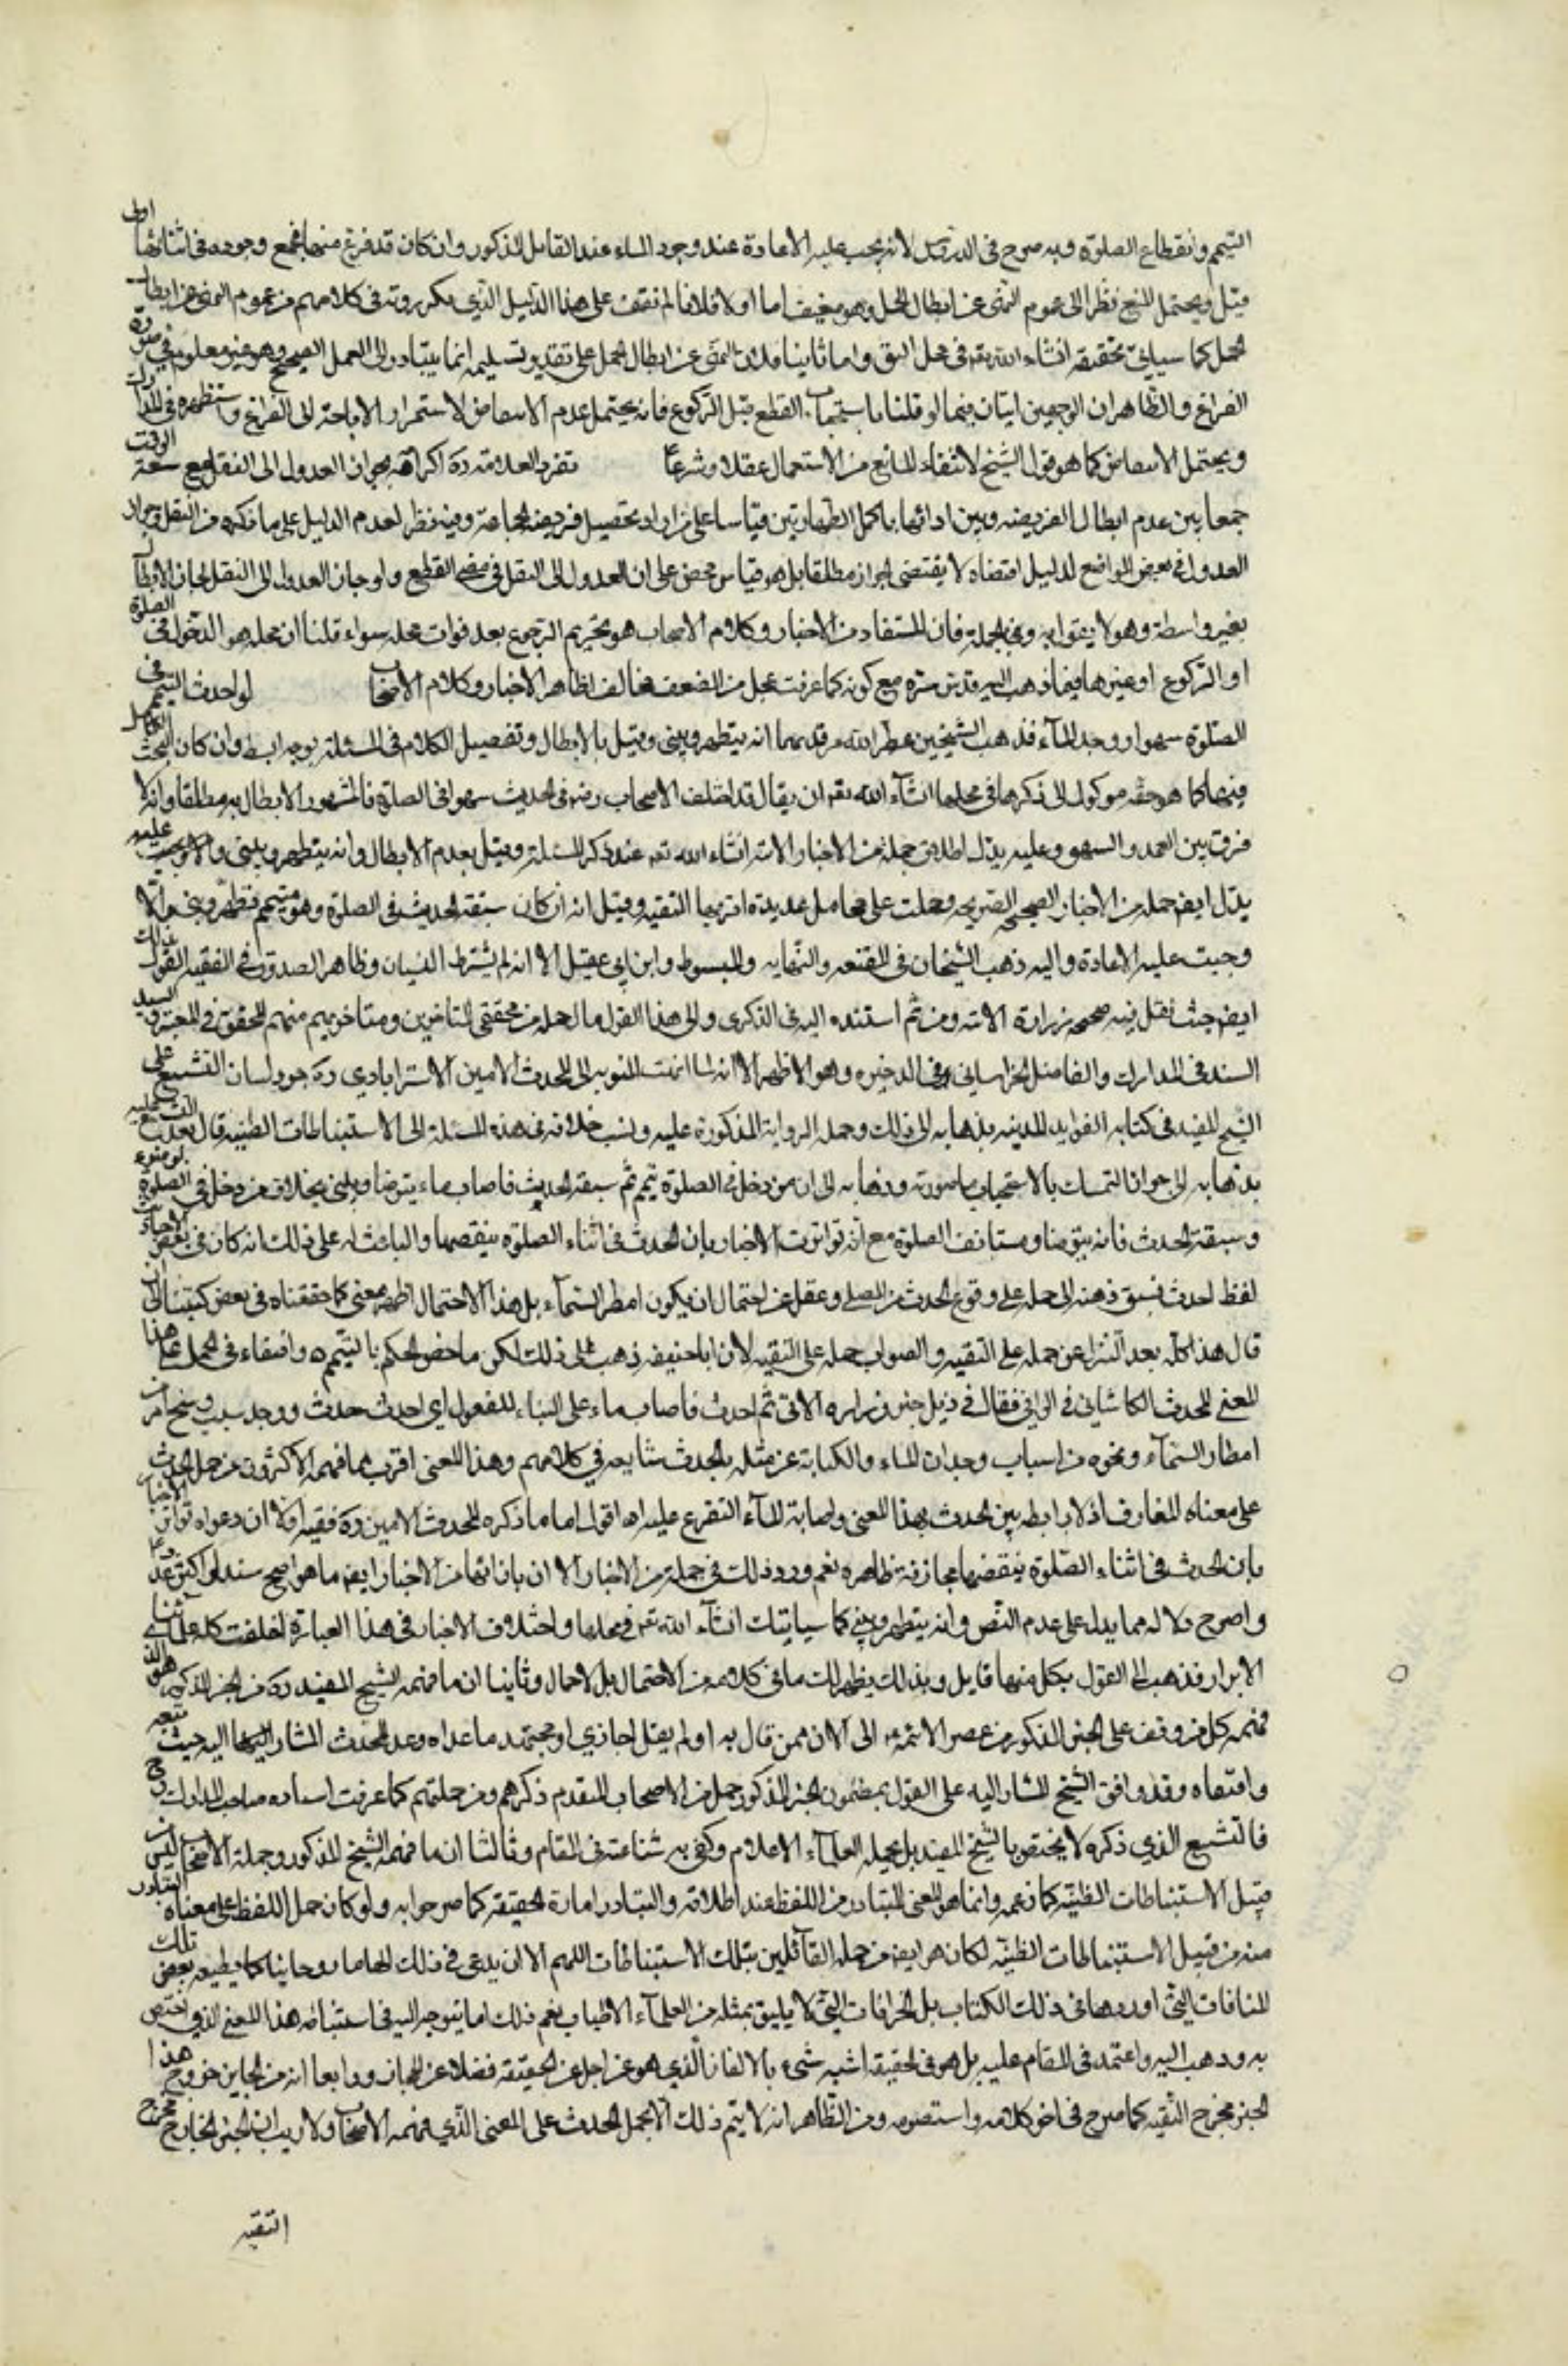 التيمم وانقطاع الصلوة وبه صرح في الدروس لانه يجب عليه الاعادة عند وجود الماء عند القايل المذكور وان كان قد فرغ منها فمع وجوده في اثنائها اولى
قيل ويحتمل المنع نظرا الى عموم النهى عن ابطال العمل وهو ضعيف اما اولا فلانا لم نقف على هذا الدليل الذي يكررونه في كلامهم من عموم النهى عن ابطال
العمل كما سياتي تحقيقه انشاء الله تعه في محل اليق واما ثانيا فلان النهى عن ابطال العمل على تقدير تسليمه انما يتبادر الى العمل الصحيح وهو غير معلوم في صورة
الفراغ والظاهر ان الوجهين ايتان فيما لو قلنا باستحباب القطع قبل الركوع فانه يحتمل عدم الانتقاض لاستمرار الاباحة الى الفراغ واستظهره في المدارك
ويحتمل الانتقاض كما هو قول الشيخ لانتفاء المانع من الاستعمال عقلا وشرعا تفرد العلامة ره اكراهه بجواز العدول الى النفل مع سعة الوقت
جمعا بين عدم ابطال الفريضه وبين ادائها باكمل الطهارتين قياسا على من اراد تحصيل فريضة الجماعة وفيه نظر لعدم الدليل على ما ذكره من النقل وجواز
العدول في بعض المواضع لدليل اقتضاه لا يقتضى الجواز مطلقا بل هو قياس محض على ان العدول الى النفل في معنى القطع ولو جاز العدول الى النفل لجاز الابطال
بغير واسطة وهو لا يقول به وفي الجملة فان المستفاد من الاخبار وكلام الاصحاب هو تحريم الرجوع بعد فوات محله سواء قلنا ان محله هو الدخول في الصلوة
او الركوع او غيرها فيما ذهب اليه قدس سره مع كونه كما عرفت بمحل من الضعف مخالف لظاهر الاخبار وكلام الاصحاب لو احدث المتيمم في
الصلوة سهوا ووجد الماء فذهب الشيخين عطر الله مرقديهما انه يتطهر ويبنى وقيل بالابطال وتفصيل الكلام في المسئلة بوجه ابسط وان كان البحث
فيها كما هو حقه موكول الى ذكرها في محلها انشاء الله تعه ان يقال قد اختلف الاصحاب رضه في الحديث سهوا في الصلوة فالمشهور الابطال به مطلقا وانه لا
فرق بين العمد والسهو وعليه يدل اطلاق جملة من الاخبار الاتيه انشاء الله تعه عند ذكر المسئلة وقيل بعدم الابطال وانه يتطهر ويبنى وعليه
يدل ايضه جمله من الاخبار الصحيحه الصريحه وحملت على محامل عديدة اقربها التقيه وقيل انه ان كان سبقه الحدث في الصلوة وهو متيمم تطهر وبنى والا
وجبت عليه الاعادة واليه ذهب الشيخان في المقنعه والنهايه والمبسوط وابن ابي عقيل الا انه لم يشترط النسيان وظاهر الصدوق في الفقيه القول بذلك
ايضه حيث نقل فيه صحيحه زرارة الاتيه ومن ثم اسنده اليه في الذكرى والى هذا القول مال جمله من محققي المتاخرين ومتاخريهم منهم المحقق في المعتبر والسيد
السند في المدارك والفاضل الخراساني في الذخيره وهو الاظهر الا انه لما انتهت النوبه الى المحدث الامين الاسترابادي ره جرد لسان التشنيع على
الشيخ المفيد في كتابه الفوايد المدنيه بذهابه الى ذلك وحمله الرواية المذكورة عليه ونسب خلافه في هذه المسئلة الى الاستنباطات الظنيه قال بعد التشنيع عليه
بذهابه الى جواز التمسك بالاستصحاب ما صورته وذهابه الى ان من دخل في الصلوة بتيمم ثم سبقه الحدث فاصاب ماء يتوضا ويبنى بخلاف من دخل في الصلوة بوضوء
وسبقه الحدث فانه يتوضا ويستانف الصلوة مع انه تواترت الاخبار بان الحدث في اثناء الصلوة ينقضها والباعث له على ذلك انه كان في بعض الاخبار
لفظ احدث فسبق ذهنه الى حمله على وقوع الحدث من المصلى وغفل عن احتمال ان يكون امطر السماء بل هذا الاحتمال اظهر معنى كما حققناه في بعض كتبنا الى ان
قال هذا كله بعد التنزل عن حمله على التقيه والصواب حمله على التقيه لان ابا حنيفه ذهب الى ذلك لكن ما خص الحكم بالتيمم ه واقتفاه في الحمل على هذا
المعنى المحدث الكاشاني في الوافي فقال في ذيل خبر زراره الاتي ثم احدث فاصاب ماء على البناء للمفعول اي احدث حدث ووجد سبب وسنح من
امطار السماء ونحوه من اسباب وجدان الماء والكناية عن مثله بالحدث شايعه في كلامهم وهذا المعنى اقرب مما فهمه الاكثرون من حمل الحدث
على معناه المتعارف اذ لا رابطه بين الحدث بهذا المعنى واصابة الماء المتفرع عليه اه اقول اما ما ذكره المحدث الامين ره ففيه اولا ان دعواه تواتر الاخبار
بان الحدث في اثناء الصلوة ينقضها مجازفة ظاهره نعم ورد ذلك في جملة من الاخبار الا ان بازائها من الاخبار ايضه ما هو اصح سندا واكثر عددا
واصرح دلاله مما يدل على عدم النقض وانه يتطهر ويبنى كما سياتيك انشاء الله تعه في محلها واختلاف الاخبار في هذا العبارة اختلفت كلمه علمائنا
الابرار فذهب الى القول بكل منها قايل وبذلك يظهر لك ما في كلامه من الاحتمال بل الاحمال وثانيا ان ما فهمه الشيخ المفيد ره من الخبر المذكور هو الذي
فهمه كل من وقف على الخبر المذكور من عصر الائمة ع الى الان ممن قال به او لم يقل اخباري او مجتهد ما عداه وعد المحدث المشار اليه حيث تبعه
واقتفاه وقد وافق الشيخ المشار اليه على القول بمضمون الخبر المذكور جمله من الاصحاب المتقدم ذكرهم ومن جملتهم كما عرفت استاده صاحب المدارك وح
فالتشنيع الذي ذكره لا يختص بالشيخ المفيد بل بجمله العلماء الاعلام وكفى به شناعة في المقام وثالثا ان ما فهمه الشيخ المذكور وجملة الاصحاب ليس من
قبيل الاستنباطات الظنيه كما زعمه وانما هو المعنى المتبادر من اللفظ عند اطلاقه والتبادر امارة الحقيقه كما صرحوا به ولو كان حمل اللفظ على معناه المتبادر
منه من قبيل الاستنباطات الظنيه لكان هو ايضه من جمله القائلين بتلك الاستنباطات اللهم الا ان يدعى في ذلك الهاما روحانيا كما يطيعه بعض تلك
المنافات التي اوردها في ذلك الكتاب بل الخرافات التي لا يليق بمثله من العلماء الاطياب نعم ذلك اما يتوجه اليه في استنباطه هذا المعنى الذي اختص
به وذهب اليه واعتمد في المقام عليه بل هو في الحقيقه اشبه شيء بالالغاز الذي هو عن اجل عن الحقيقه فضلا عن المجاز ورابعا انه من الجايز خروج هذا
الخبر مخرج التقيه كما صرح في اخر كلامه واستصوبه ومن الظاهر انه لا يتم ذلك الا بحمل الحدث على المعنى الذي فهمه الاصحاب ولا ريب ان الخبر الخارج مخرج
التقيه